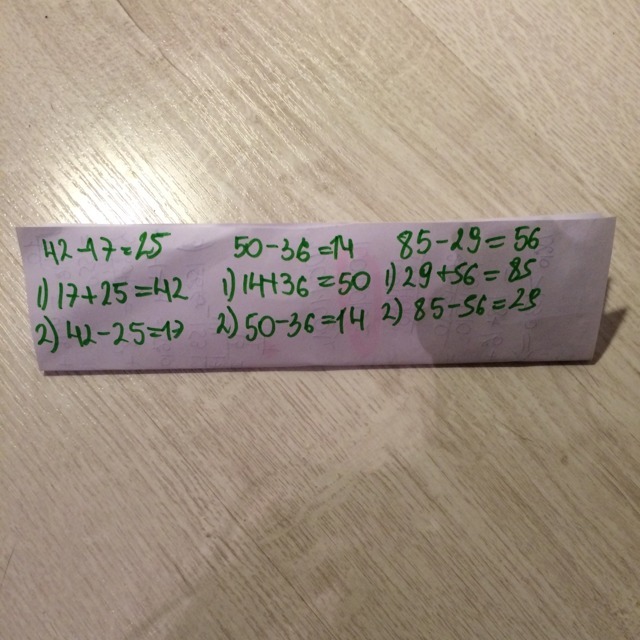 42-17=25 50-36=14 85-29=56
1) 17+25=42 1) 14+36=50 1) 29+56=85
2) 42-25=17 2) 50-36=14 2) 85-56=29